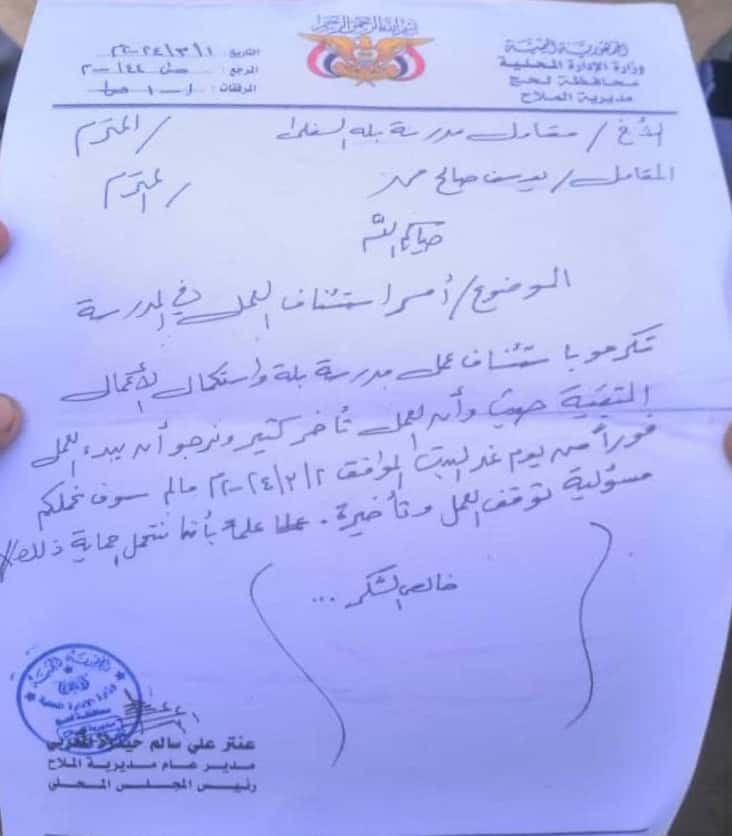 بسم الله الرحمن الرحيم
الجمهورية اليمنية
وزارة الإدارة المحلية
محافظة لحج
مديرية الملاح
التاريخ: ٢٠٢٤/٣/١
الرجع:
المرفقات:
الأخ / مقاول مدرسة بله السفلى / المحترم
المقاول / يوسف صالح / المحترم
حياكم الله
الموضوع / أمر استئناف العمل في المدرسة
تكرموا باستئناف عمل مدرسة بلة واستكمال الأعمال
المتبقية حيث وأن العمل تأخر كثير ونرجو أن يبدء العمل
فوراً من يوم غد السبت الموافق ٢٠٢٤/٣/٢ مالم سوف نحملكم
مسؤلية توقف العمل وتأخيرة. علماً بأننا نتحمل حماية ذلك //
خالص الشكر ...
عنتر علي سالم
مدير عام مديرية الملاح
رئيس المجلس المحلي